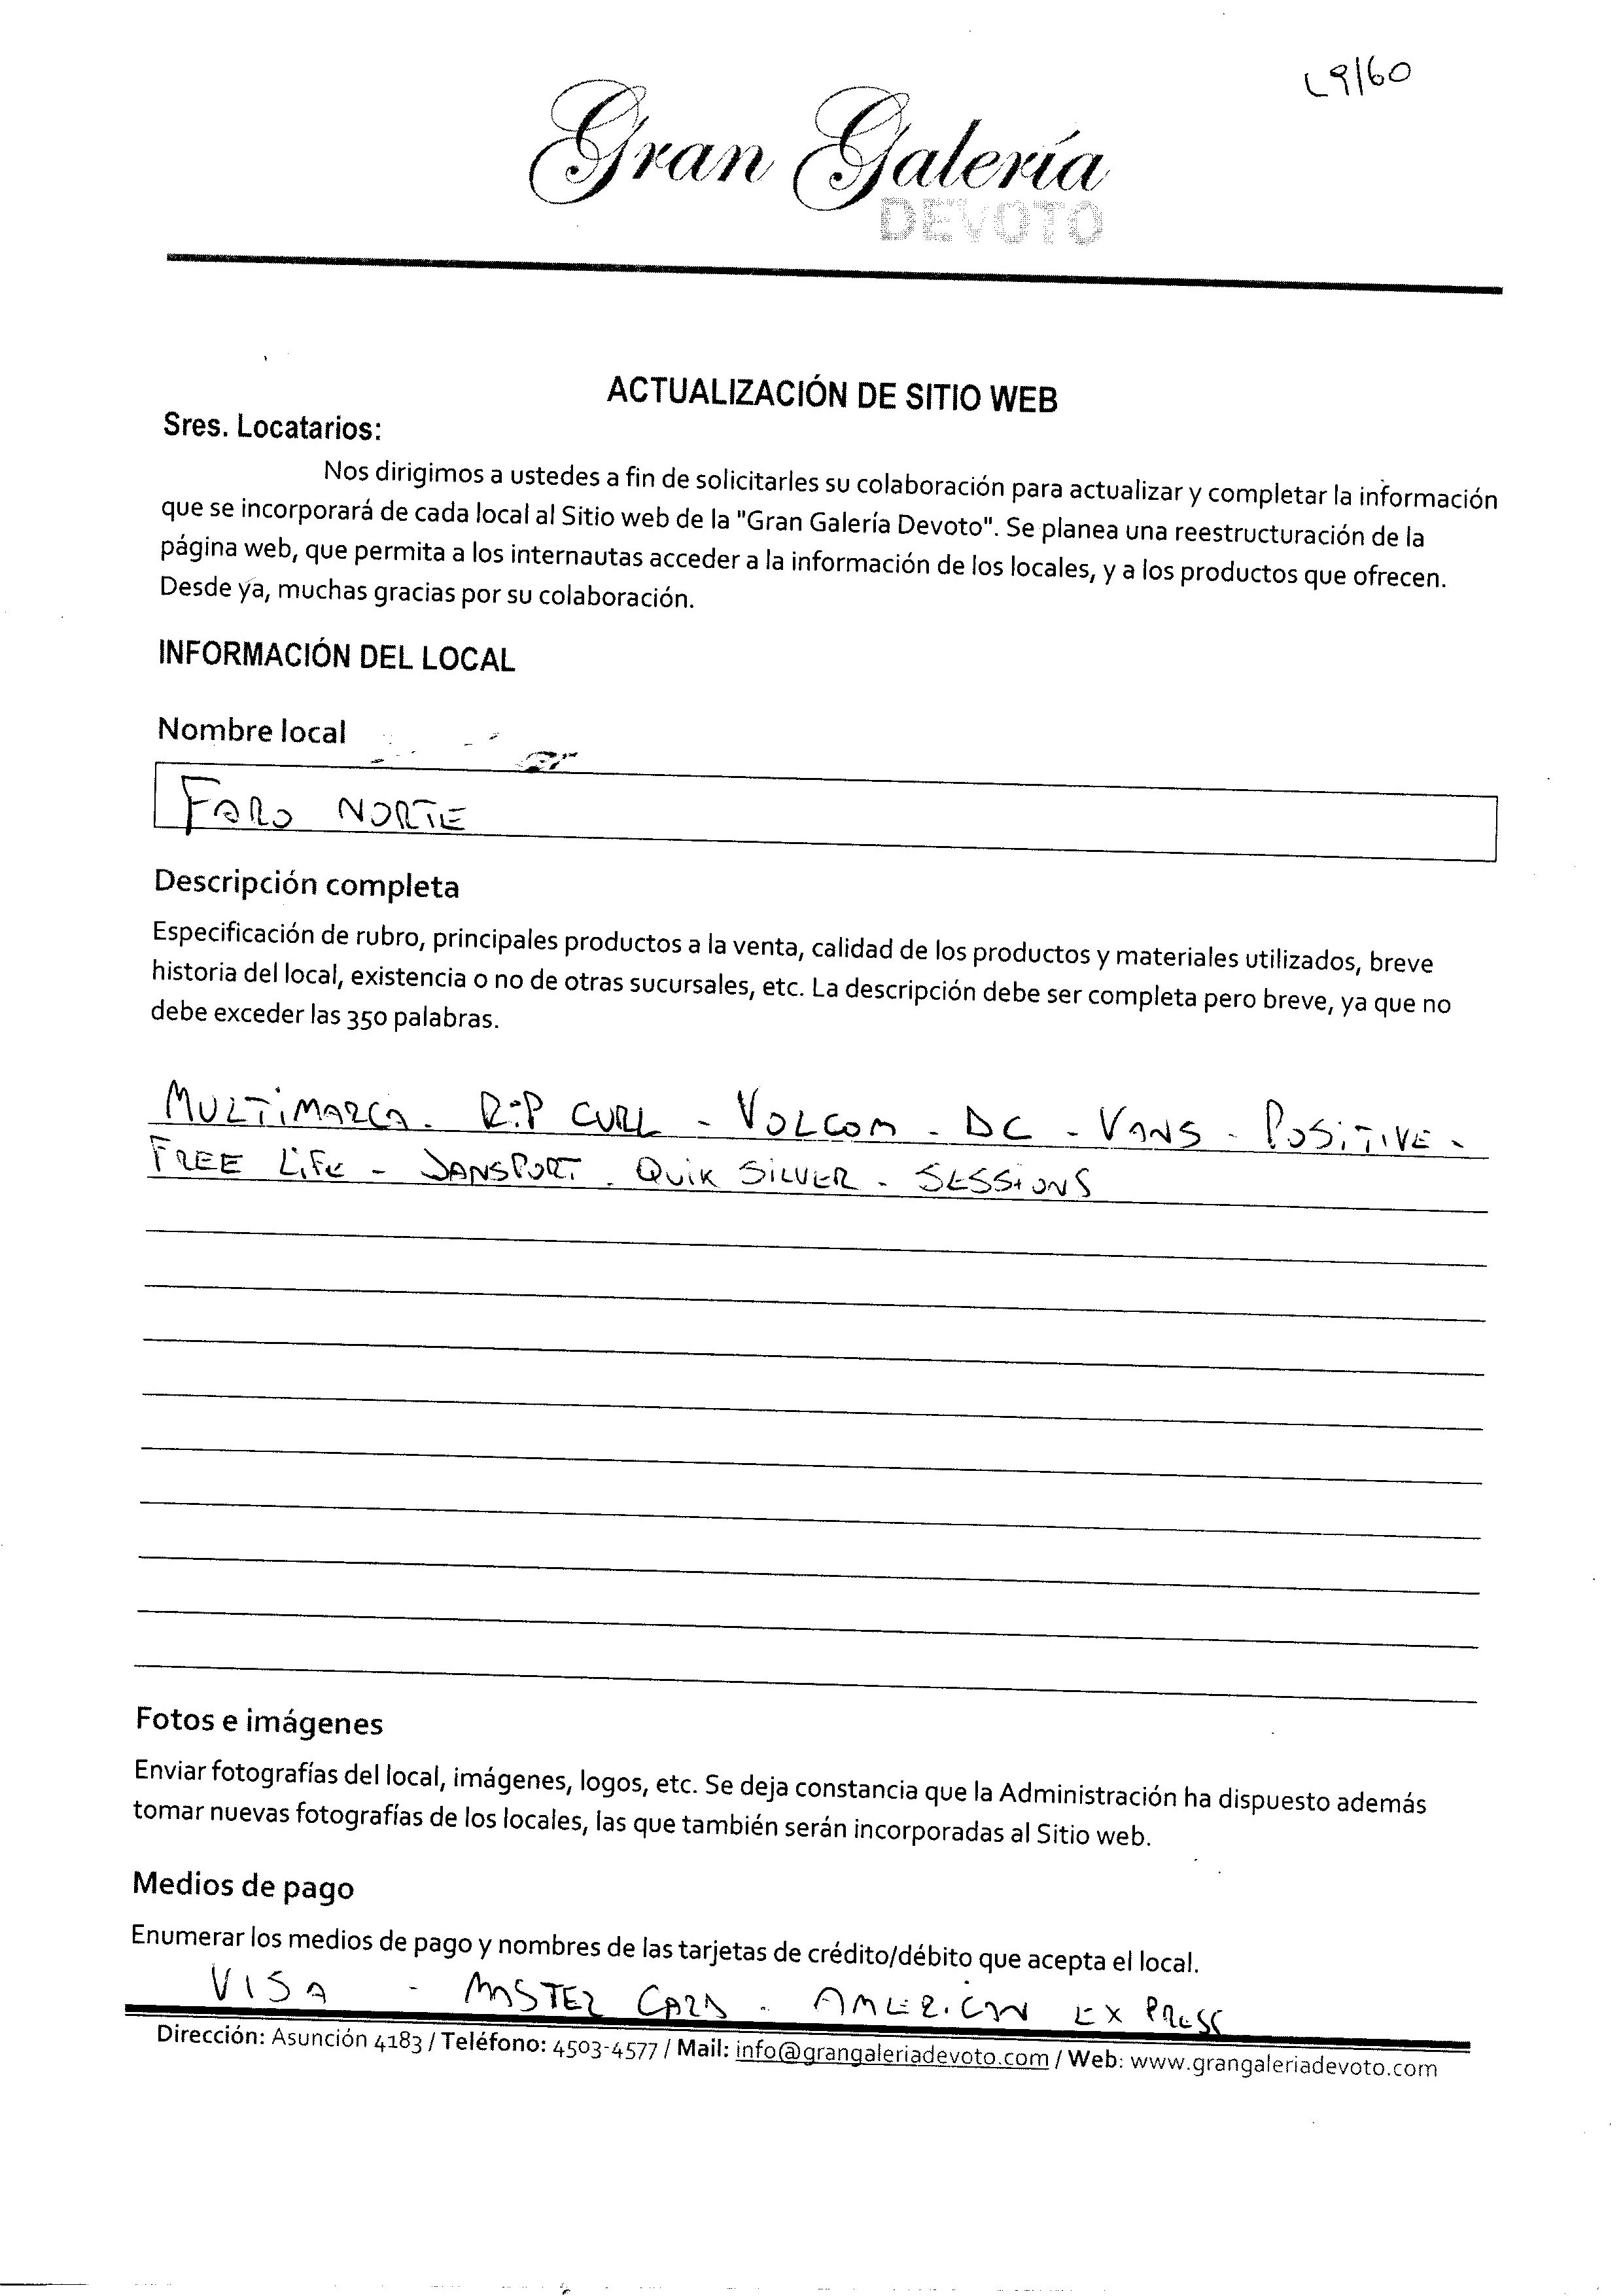 L9/60
Gran Galería
DEVOTO
ACTUALIZACIÓN DE SITIO WEB
Sres. Locatarios:
Nos dirigimos a ustedes a fin de solicitarles su colaboración para actualizar y completar la información
que se incorporará de cada local al Sitio web de la "Gran Galería Devoto". Se planea una reestructuración de la
página web, que permita a los internautas acceder a la información de los locales, y a los productos que ofrecen.
Desde ya, muchas gracias por su colaboración.
INFORMACIÓN DEL LOCAL
Nombre local
FARO NORTE
Descripción completa
Especificación de rubro, principales productos a la venta, calidad de los productos y materiales utilizados, breve
historia del local, existencia o no de otras sucursales, etc. La descripción debe ser completa pero breve, ya que no
debe exceder las 350 palabras.
MULTIMARCA. RIP CURL - VOLCOM - DC - VANS - POSITIVE -
FREE LIFE - JANSPORT. QUIK SILVER - SESSIONS
Fotos e imágenes
Enviar fotografías del local, imágenes, logos, etc. Se deja constancia que la Administración ha dispuesto además
tomar nuevas fotografías de los locales, las que también serán incorporadas al Sitio web.
Medios de pago
Enumerar los medios de pago y nombres de las tarjetas de crédito/débito que acepta el local.
VISA - MASTER CARD - AMERICAN EXPRESS
Dirección: Asunción 4183 / Teléfono: 4503-4577 / Mail: info@grangaleriadevoto.com / Web: www.grangaleriadevoto.com